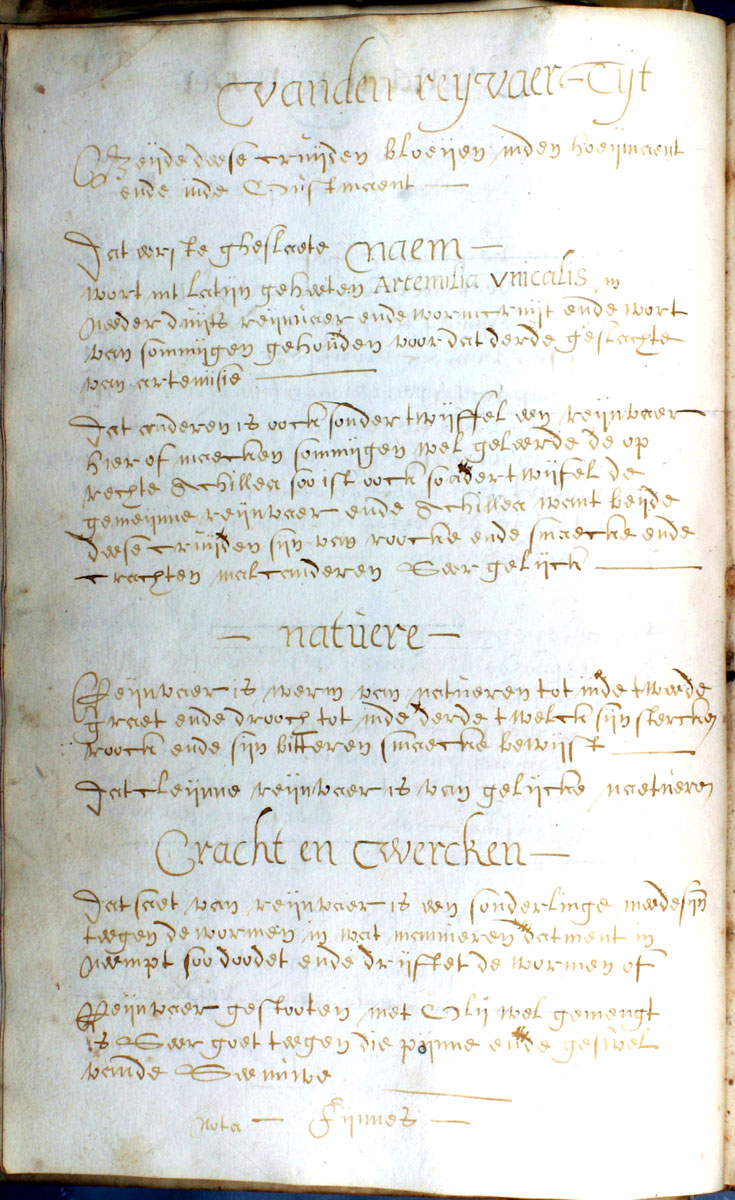 vanden reyvaer - Tijt
Beijde deese cruijden bloeijen inden hoeijmaent
ende inde Oustmaent —
Dat eerste gheslacte naem —
wort int latijn geheeten Artemisia vnicalis in
neederduijts reijnvaer ende wormcruijt ende wort
van sommijgen gehouden voor dat derde geslachte
van artemisie —
Dat anderen is oock sonder twijffel een reijnvaer
hier of maecken sommijgen wel geleerde de op
rechte Achillea soo ist oock sonder twijfel de
gemeijnne reijnvaer ende Achillea want beijde
deese cruijden sijn van roocke ende smaecke ende
crachten malcanderen Seer gelijck —
— natuere —
Reijnvaer is werm van natueren tot inde tweede
graet ende drooch tot inde derde twelck sijn stercken
roock ende sijn bitteren smaecke bewijst —
Dat cleijnne reijnvaer is van gelijcke naetueren
Cracht en Twercken —
Dat saet van reijnvaer is een sonderlinge meedesijn
teegen de wormen in wat mannieren datment in
neempt soo doodet ende drijffet de wormen of
Reijnvaer gestooten met Olij wel gemengt
is Seer goet teegen die pijnne ende geswel
vande Seenuwe
nota — Fijnnes —